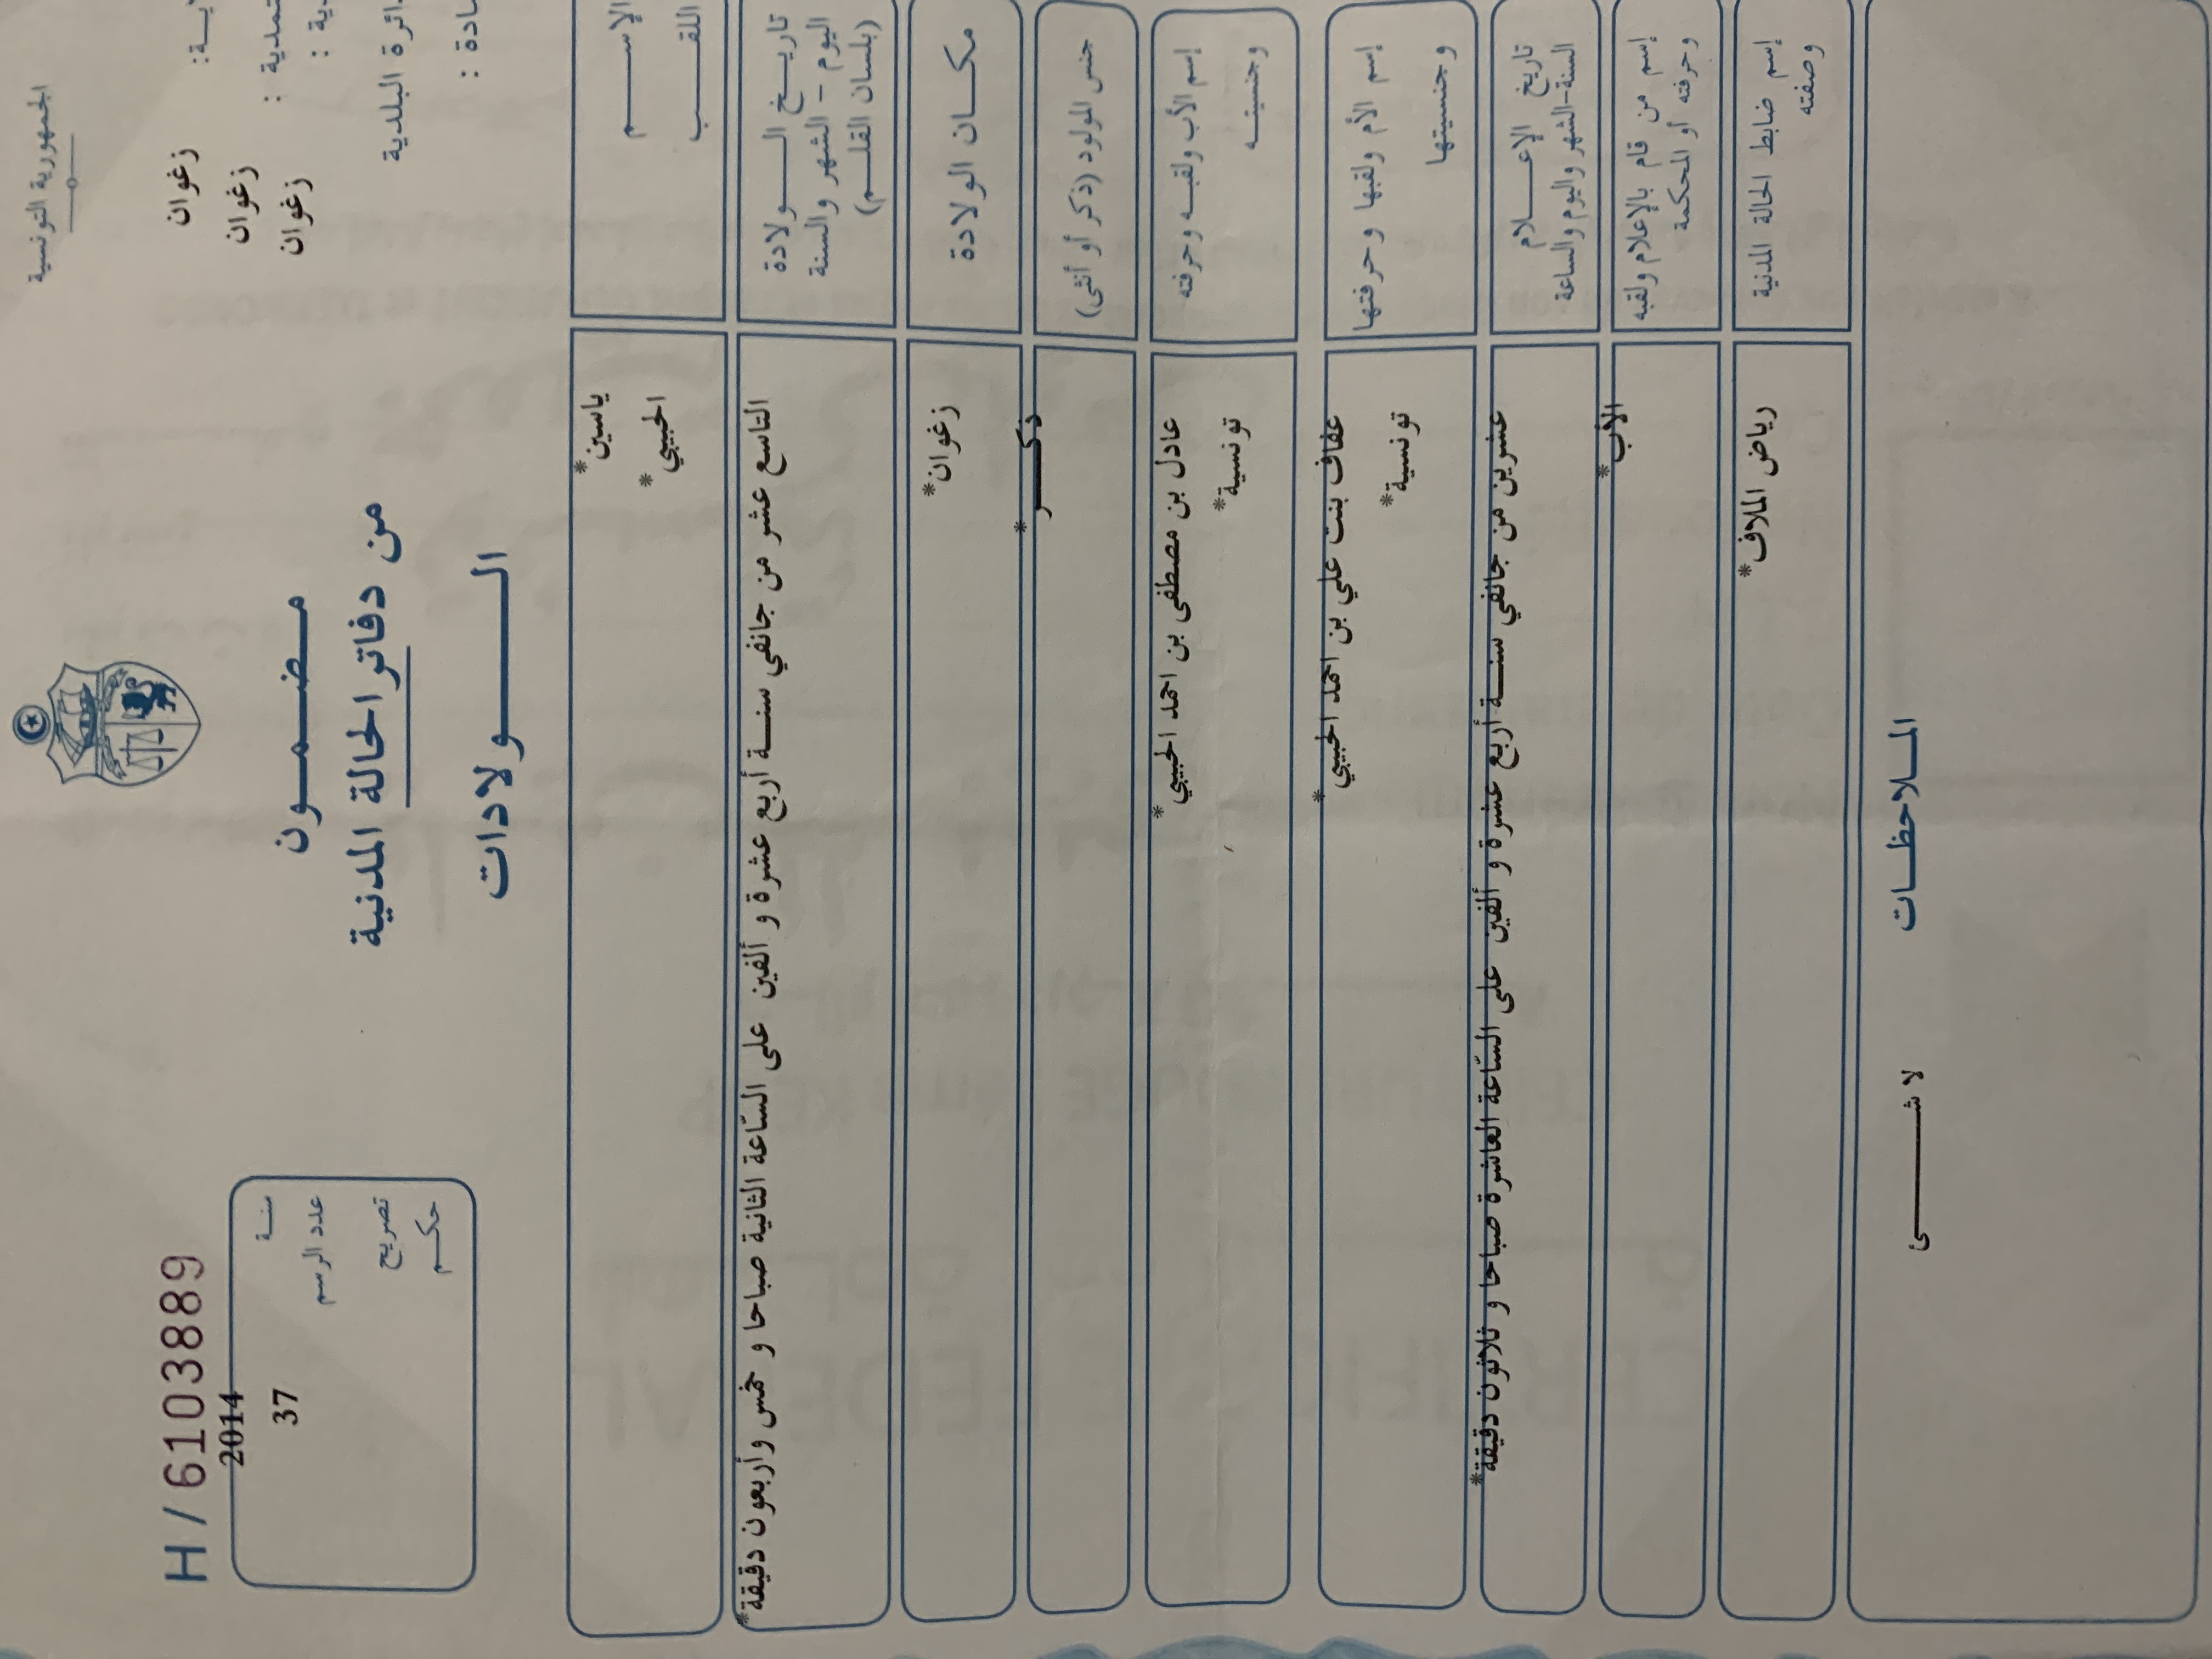 الجمهورية التونسية
زغوان
زغوان
زغوان
دائرة البلدية
H / 6103889
سنة 2014
عدد الرسم 37
تصريح
حكم
مضمون
من دفاتر الحالة المدنية
الولادات
الإسم ياسين*
اللقب الحبيبي*
تاريخ الولادة
اليوم - الشهر والسنة
(بلسان القلم)
التاسع عشر من جانفي سنة أربع عشرة و ألفين على السّاعة الثانية صباحا و خمس وأربعون دقيقة*
مكان الولادة زغوان*
جنس المولود (ذكر أو أنثى) ذكر*
إسم الأب ولقبه وحرفته عادل بن مصطفى بن احمد الحبيبي*
وجنسيته تونسية*
إسم الأم ولقبها وحرفتها عفاف بنت علي بن احمد الحبيبي*
وجنسيتها تونسية*
تاريخ الإعلام
السنة-الشهر واليوم والساعة
عشرين من جانفي سنة أربع عشرة و ألفين على السّاعة العاشرة صباحا و ثلاثون دقيقة*
إسم من قام بالإعلام ولقبه
وحرفته أو المحكمة
الأب*
إسم ضابط الحالة المدنية
وصفته
رياض الملاف*
الملاحظات
لا شئ